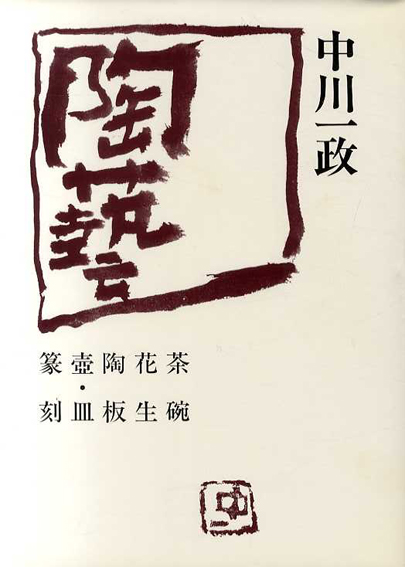 中川一政
陶藝
茶碗
花生
陶板
壺・皿
篆刻
中